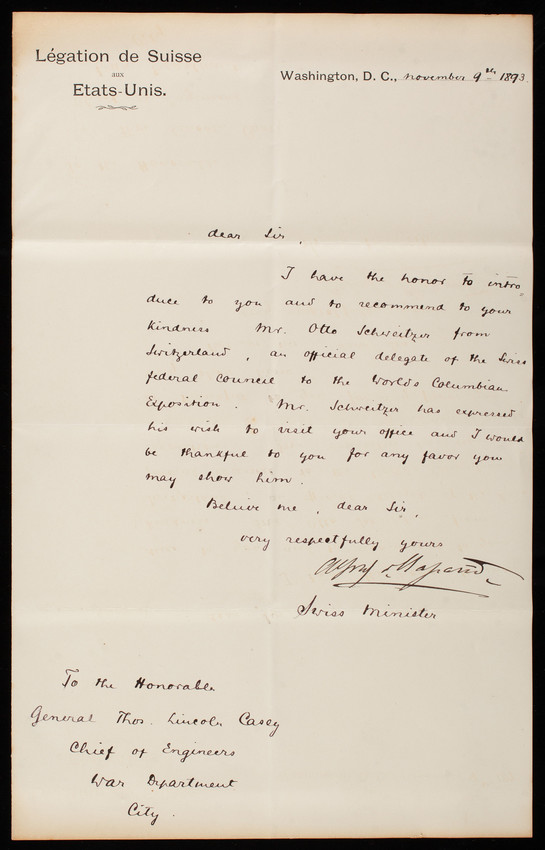 Légation de Suisse
aux
Etats-Unis.
Washington, D. C., november 9th 1893.
dear Sir,
I have the honor to intro
duce to you and to recommend to your
kindness Mr. Otto Schweitzer from
Switzerland, an official delegate of the Swiss
federal Council to the World's Columbian
Exposition. Mr. Schweitzer has expressed
his wish to visit your office and I would
be thankful to you for any favor you
may show him.
Believe me, dear Sir,
very respectfully yours
Swiss Minister
To the Honorable
General Thos. Lincoln Casey
Chief of Engineers
War Department
City.